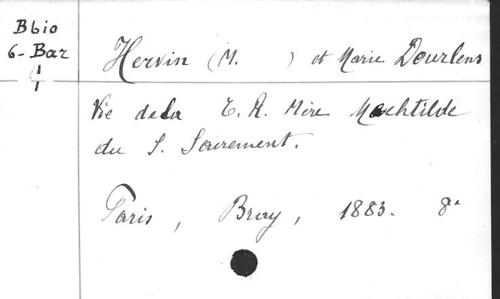 Bbio
6-Bar
1
1
Hervin (M. ) et Marie Dourlens
Vie de la T. R. Mère Mechtilde
du S. Sacrement.
Paris, Bray, 1883. 8°